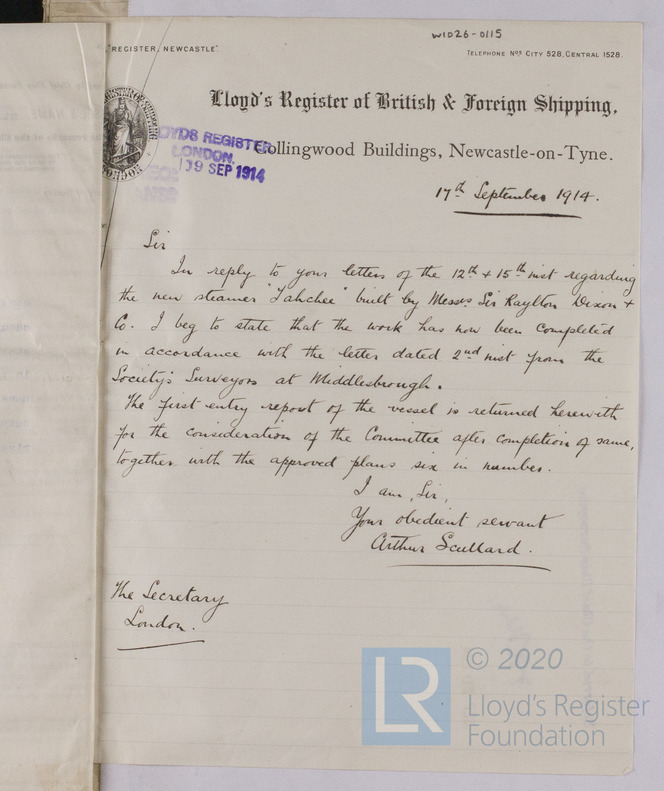 W1026-0115
"REGISTER, NEWCASTLE"
TELEPHONE Nos CITY 528, CENTRAL 1528.
Lloyd's Register of British & Foreign Shipping,
Collingwood Buildings, Newcastle-on-Tyne.
LLOYDS REGISTER
LONDON.
19 SEP 1914
17th September 1914.
Sir
In reply to your letters of the 12th & 15th inst regarding
the new steamer "Tahchee" built by Messrs Sir Raylton Dixon &
Co. I beg to state that the work has now been completed
in accordance with the letter dated 2nd inst from the
Society's Surveyors at Middlesbrough.
The first entry report of the vessel is returned herewith
for the consideration of the Committee after completion of same,
together with the approved plans six in number.
I am, Sir,
Your obedient servant
Arthur Scullard.
The Secretary
London.
LR
© 2020
Lloyd's Register
Foundation